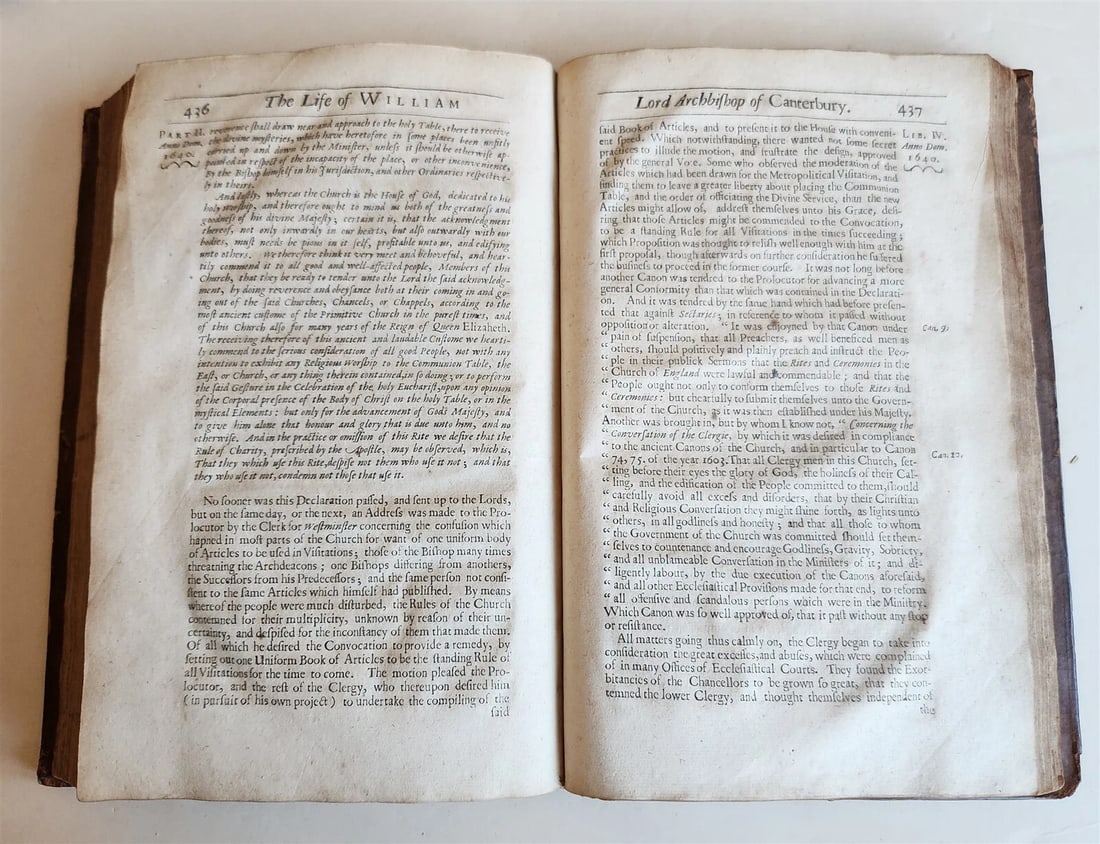 436
The Life of WILLIAM
PART II.
Anno Dom.
1640.
reverence shall draw near and approach to the holy Table, there to receive
the divine mysteries, which have heretofore in some places been unfitly
carried up and down by the Minister, unless it should be otherwise ap-
pointed in respect of the incapacity of the place, or other inconvenience,
by the Bishop himself in his Jurisdiction, and other Ordinaries respective-
ly in theirs.
And lastly, whereas the Church is the House of God, dedicated to his
holy worship, and therefore ought to mind us both of the greatness and
goodness of his divine Majesty; certain it is, that the acknowledgment
thereof, not only inwardly in our hearts, but also outwardly with our
bodies, must needs be pious in it self, profitable unto us, and edifying
unto others. We therefore think it very meet and behoveful, and hear-
tily commend it to all good and well-affected people, Members of this
Church, that they be ready to tender unto the Lord the said acknowledg-
ment, by doing reverence and obeysance both at their coming in and go-
ing out of the said Churches, Chancels, or Chappels, according to the
most ancient custome of the Primitive Church in the purest times, and
of this Church also for many years of the Reign of Queen Elizabeth.
The receiving therefore of this ancient and laudable Custome we hearti-
ly commend to the serious consideration of all good People, not with any
intention to exhibit any Religious Worship to the Communion Table, the
East, or Church, or any thing therein contained, in so doing; or to perform
the said Gesture in the Celebration of the holy Eucharist, upon any opinion
of the Corporal presence of the Body of Christ on the holy Table, or in the
mystical Elements: but only for the advancement of Gods Majesty, and
to give him alone that honour and glory that is due unto him, and no
otherwise. And in the practice or omission of this Rite we desire that the
Rule of Charity, prescribed by the Apostle, may be observed, which is,
That they which use this Rite, despise not them who use it not; and that
they who use it not, condemn not those that use it.
No sooner was this Declaration passed, and sent up to the Lords,
but on the same day, or the next, an Address was made to the Pro-
locutor by the Clerk for Westminster concerning the confusion which
hapned in most parts of the Church for want of one uniform body
of Articles to be used in Visitations; those of the Bishop many times
threatning the Archdeacons; one Bishops differing from anothers,
the Successors from his Predecessors; and the same person not consi-
stent to the same Articles which himself had published. By means
whereof the people were much disturbed, the Rules of the Church
contemned for their multiplicity, unknown by reason of their un-
certainty, and despised for the inconstancy of them that made them.
Of all which he desired the Convocation to provide a remedy, by
setting out one Uniform Book of Articles to be the standing Rule of
all Visitations for the time to come. The motion pleased the Pro-
locutor, and the rest of the Clergy, who thereupon desired him
(in pursuit of his own project) to undertake the compiling of the
said
Lord Archbishop of Canterbury.
437
LIB. IV.
Anno Dom.
1640.
said Book of Articles, and to present it to the House with conveni-
ent speed. Which notwithstanding, there wanted not some secret
practices to illude the motion, and frustrate the design, approved
of by the general Vote. Some who observed the moderation of the
Articles which had been drawn for the Metropolitical Visitation, and
finding them to leave a greater liberty about placing the Communion
Table, and the order of officiating the Divine Service, than the new
Articles might allow of, addrest themselves unto his Grace, desi-
ring that those Articles might be commended to the Convocation,
to be a standing Rule for all Visitations in the times succeeding;
which Proposition was thought to relish well enough with him at the
first proposal, though afterwards on further consideration he suffered
the business to proceed in the former course. It was not long before
another Canon was tendred to the Prolocutor for advancing a more
general Conformity than that which was contained in the Declarati-
on. And it was tendred by the same hand which had before presen-
ted that against Sectaries; in reference to whom it passed without
opposition or alteration. “It was enjoyned by that Canon under
“ pain of suspension, that all Preachers, as well beneficed men as
“ others, should positively and plainly preach and instruct the Peo-
“ ple in their publick Sermons that the Rites and Ceremonies in the
“ Church of England were lawful and commendable; and that the
“ People ought not only to conform themselves to those Rites and
“ Ceremonies: but chearfully to submit themselves unto the Govern-
“ ment of the Church, as it was then established under his Majesty.
Another was brought in, but by whom I know not, “ Concerning the
“ Conversation of the Clergie, by which it was desired in compliance
“ to the ancient Canons of the Church, and in particular to Canon
“ 74, 75, of the year 1603. That all Clergy men in this Church, set-
“ ting before their eyes the glory of God, the holiness of their Cal-
“ ling, and the edification of the People committed to them, should
“ carefully avoid all excess and disorders, that by their Christian
“ and Religious Conversation they might shine forth, as lights unto
“ others, in all godliness and honesty; and that all those to whom
“ the Government of the Church was committed should set them-
“ selves to countenance and encourage Godliness, Gravity, Sobriety,
“ and all unblameable Conversation in the Ministers of it; and di-
“ ligently labour, by the due execution of the Canons aforesaid,
“ and all other Ecclesiastical Provisions made for that end, to reform
“ all offensive and scandalous persons which were in the Ministry.
Which Canon was so well approved of, that it past without any stop
or resistance.
All matters going thus calmly on, the Clergy began to take into
consideration the great excesses, and abuses, which were complained
of in many Offices of Ecclesiastical Courts. They found the Exor-
bitancies of the Chancellors to be grown so great, that they con-
temned the lower Clergy, and thought themselves independent of
the
Can. 9.
Can. 12.